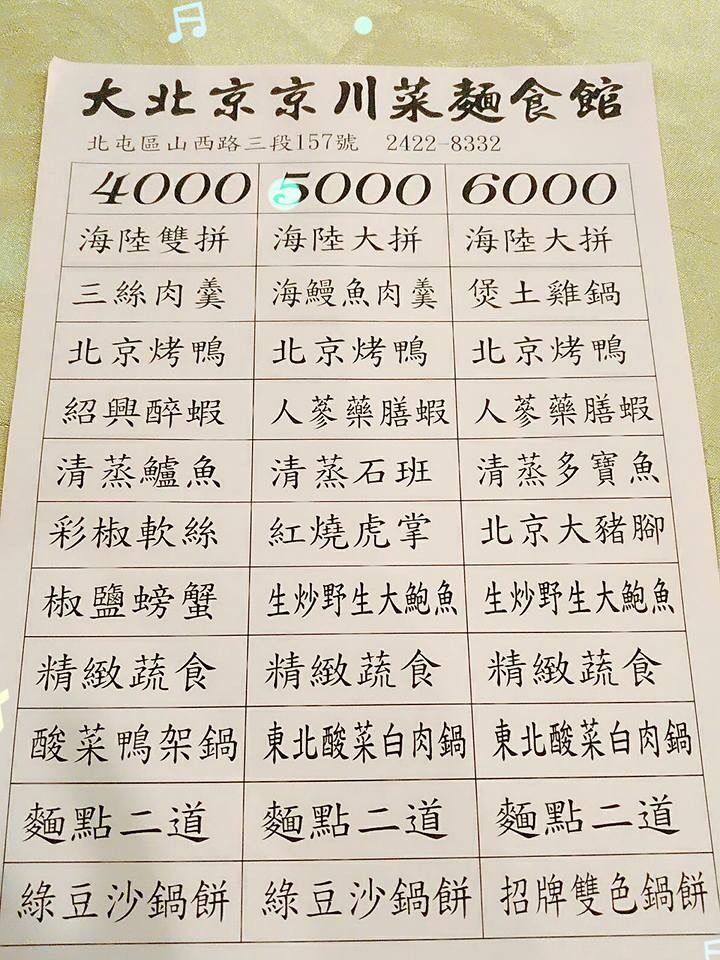 大北京京川菜麵食館
北屯區山西路三段157號 2422-8332
4000 5000 6000
海陸雙拼 海陸大拼 海陸大拼
三絲肉羹 海鰻魚肉羹 煲土雞鍋
北京烤鴨 北京烤鴨 北京烤鴨
紹興醉蝦 人蔘藥膳蝦 人蔘藥膳蝦
清蒸鱸魚 清蒸石班 清蒸多寶魚
彩椒軟絲 紅燒虎掌 北京大豬腳
椒鹽螃蟹 生炒野生大鮑魚 生炒野生大鮑魚
精緻蔬食 精緻蔬食 精緻蔬食
酸菜鴨架鍋 東北酸菜白肉鍋 東北酸菜白肉鍋
麵點二道 麵點二道 麵點二道
綠豆沙鍋餅 綠豆沙鍋餅 招牌雙色鍋餅